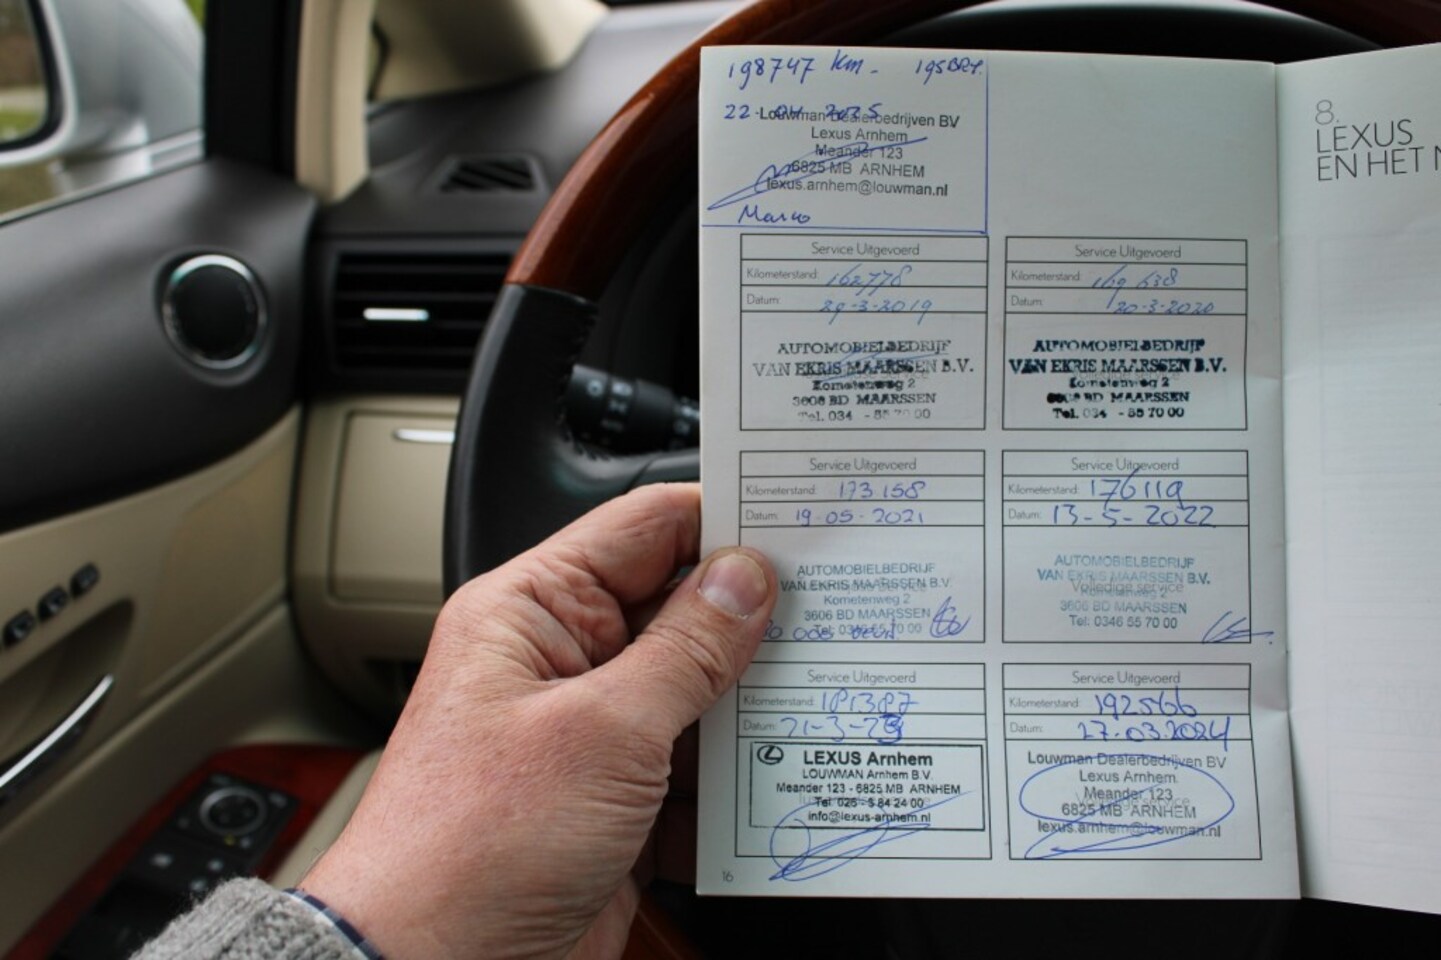 198747 km -
22-04 2025
Louwman Dealerbedrijven BV
Lexus Arnhem
Meander 123
6825 MB ARNHEM
lexus.arnhem@louwman.nl
Marco
8.
LEXUS
EN HET
Service Uitgevoerd
Kilometerstand: 162778
Datum: 29-3-2019
AUTOMOBIELBEDRIJF
VAN EKRIS MAARSSEN B.V.
Kometenweg 2
3606 BD MAARSSEN
Tel. 034 - 55 70 00
Service Uitgevoerd
Kilometerstand: 169 638
Datum: 20-3-2020
AUTOMOBIELBEDRIJF
VAN EKRIS MAARSSEN B.V.
Kometenweg 2
3606 BD MAARSSEN
Tel. 034 - 55 70 00
Service Uitgevoerd
Kilometerstand: 173 158
Datum: 19-05-2021
AUTOMOBIELBEDRIJF
VAN EKRIS MAARSSEN B.V.
Kometenweg 2
3606 BD MAARSSEN
Tel: 0346 55 70 00
Service Uitgevoerd
Kilometerstand: 176119
Datum: 13-5-2022
AUTOMOBIELBEDRIJF
VAN EKRIS MAARSSEN B.V.
Volledige service
Kometenweg 2
3606 BD MAARSSEN
Tel: 0346 55 70 00
Service Uitgevoerd
Kilometerstand: 181387
Datum: 21-3-23
LEXUS Arnhem
LOUWMAN Arnhem B.V.
Meander 123 - 6825 MB ARNHEM
Tel 026 - 3 84 24 00
info@lexus-arnhem.nl
Service Uitgevoerd
Kilometerstand: 192566
Datum: 27.03.2024
Louwman Dealerbedrijven BV
Lexus Arnhem
Meander 123
Volledige service
6825 MB ARNHEM
lexus.arnhem@louwman.nl
16